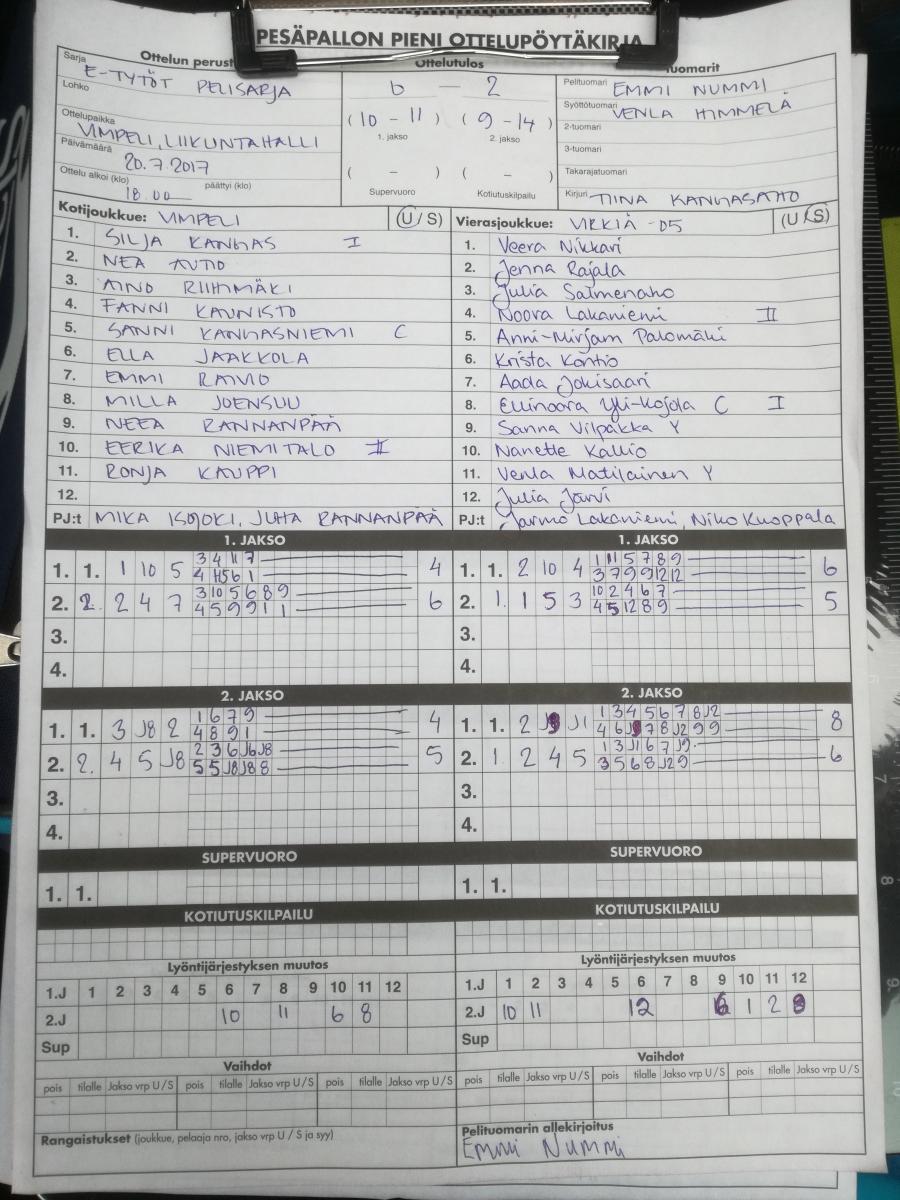 PESÄPALLON PIENI OTTELUPÖYTÄKIRJA
Ottelun perust
Sarja E-TYTÖT PELISARJA
Lohko
Ottelupaikka VIMPELI, LIIKUNTAHALLI
Päivämäärä 20.7.2017
Ottelu alkoi (klo) 18.00 päättyi (klo)
Ottelutulos
0 — 2
(10 - 11) (9 - 14)
1. jakso 2. jakso
( - ) ( - )
Supervuoro Kotiutuskilpailu
tuomarit
Pelituomari EMMI NUMMI
Syöttötuomari VENLA HIMMELÄ
2-tuomari
3-tuomari
Takarajatuomari
Kirjuri TIINA KANGASAHO
Kotijoukkue: VIMPELI (U / S)
1. SILJA KANGAS I
2. NEA AUTIO
3. AINO RIIHIMÄKI
4. FANNI KAUNISTO
5. SANNI KANGASNIEMI C
6. ELLA JAAKKOLA
7. EMMI RAIVIO
8. MILLA JOENSUU
9. NEEA RANNANPÄÄ
10. EERIKA NIEMITALO II
11. RONJA KAUPPI
12.
PJ:t MIKA ISOJOKI, JUHA RANNANPÄÄ
Vierasjoukkue: VIRKIÄ -05 (U / S)
1. Veera Nikkari
2. Jenna Rajala
3. Julia Salmenaho
4. Noora Lakaniemi II
5. Anni-Mirjam Palomäki
6. Krista Kontio
7. Aada Jokisaari
8. Ellinoora Yli-Kojola C I
9. Sanna Vilpakka Y
10. Nanette Kallio
11. Venla Matilainen Y
12. Julia Järvi
PJ:t Jarmo Lakaniemi, Niko Kuoppala
1. JAKSO
1. 1. 1 10 5 3 4 11 7 4
4 11 5 6 1
2. 2. 2 4 7 3 10 5 6 8 9 6
4 5 9 9 1 1
3.
4.
1. JAKSO
1. 1. 2 10 4 1 11 5 7 8 9 6
3 7 9 9 12 12
2. 1. 1 5 3 10 2 4 6 7 5
4 5 12 8 9
3.
4.
2. JAKSO
1. 1. 3 J8 2 1 6 7 9 4
4 8 9 1
2. 2. 4 5 J8 2 3 6 J6 J8 5
5 5 J8 J8 8
3.
4.
2. JAKSO
1. 1. 2 J1 1 3 4 5 6 7 8 J2 8
4 6 7 8 J2 9 9
2. 1. 2 4 5 1 3 J1 6 7 J9 6
3 5 6 8 J2 9
3.
4.
SUPERVUORO
1. 1.
SUPERVUORO
1. 1.
KOTIUTUSKILPAILU
KOTIUTUSKILPAILU
Lyöntijärjestyksen muutos
1.J 1 2 3 4 5 6 7 8 9 10 11 12
2.J 10 11 6 8
Sup
Lyöntijärjestyksen muutos
1.J 1 2 3 4 5 6 7 8 9 10 11 12
2.J 10 11 12 1 2
Sup
Vaihdot
pois tilalle Jakso vrp U / S pois tilalle Jakso vrp U / S pois tilalle Jakso vrp U / S
Vaihdot
pois tilalle Jakso vrp U / S pois tilalle Jakso vrp U / S pois tilalle Jakso vrp U / S
Rangaistukset (joukkue, pelaaja nro, jakso vrp U / S ja syy)
Pelituomarin allekirjoitus
Emmi Nummi